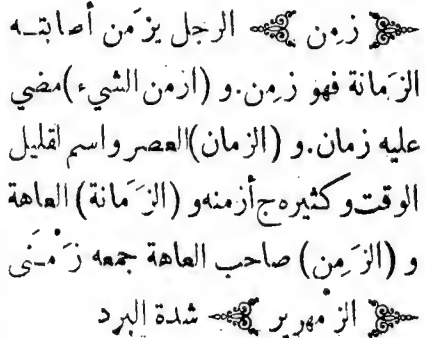 زمن الرجل يزمَن أصابتـه
الزَمانة فهو زمِن.و (ازمن الشيء)مضي
عليه زمان.و (الزمان)العصر واسم لقليل
الوقت وكثيره ج أزمنه و (الزَمانة) العاهة
و (الزَمِن) صاحب العاهة جمعه زَمْنَى
الزمْهرير شدة البرد